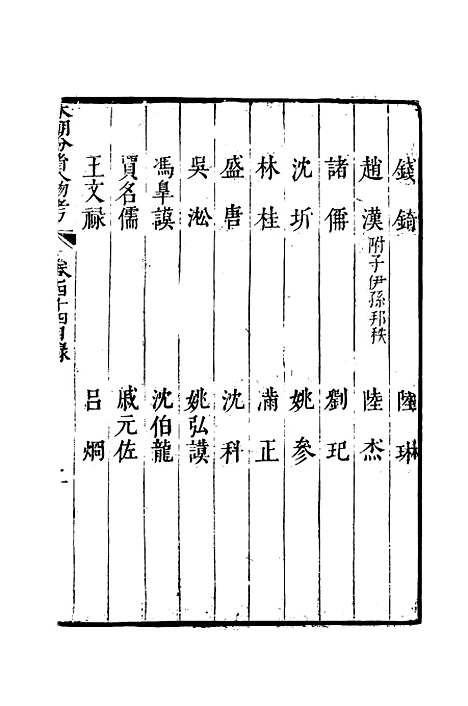 錢錡　陸琳
趙漢附子伊孫邦秩　陸杰
諸偁　劉玘
沈圻　姚參
林桂　滿正
盛唐　沈科
吳淞　姚弘謨
馮臯謨　沈伯龍
賀名儒　戚元佐
王文祿　呂焵
本朝分省人物考　卷四十四目錄